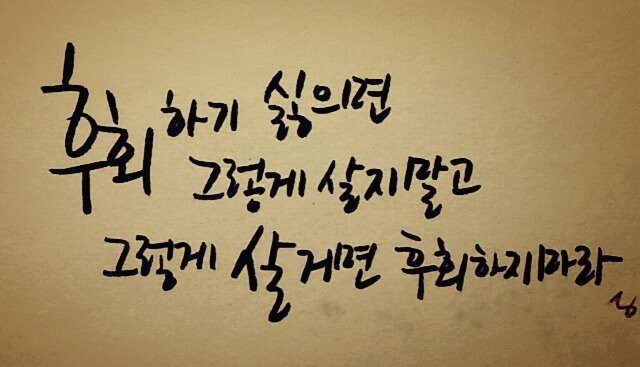 후회하기 싫의면
그렇게 살지말고
그렇게 살게면 후회하지마라